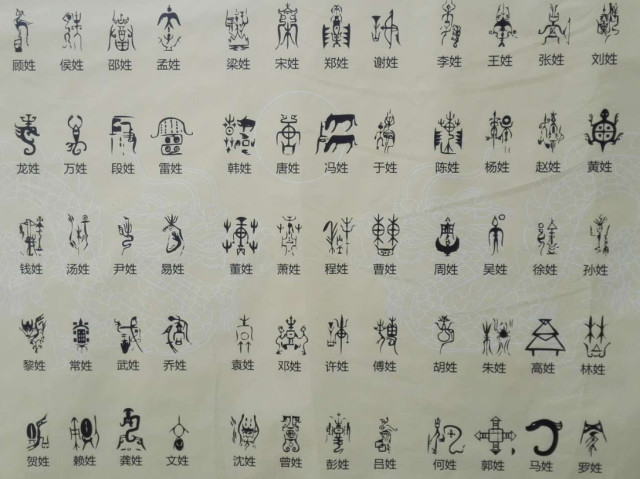 顾姓 侯姓 邵姓 孟姓 梁姓 宋姓 郑姓 谢姓 李姓 王姓 张姓 刘姓
龙姓 万姓 段姓 雷姓 韩姓 唐姓 冯姓 于姓 陈姓 杨姓 赵姓 黄姓
钱姓 汤姓 尹姓 易姓 董姓 萧姓 程姓 曹姓 周姓 吴姓 徐姓 孙姓
黎姓 常姓 武姓 乔姓 袁姓 邓姓 许姓 傅姓 胡姓 朱姓 高姓 林姓
贺姓 赖姓 龚姓 文姓 沈姓 曾姓 彭姓 吕姓 何姓 郭姓 马姓 罗姓